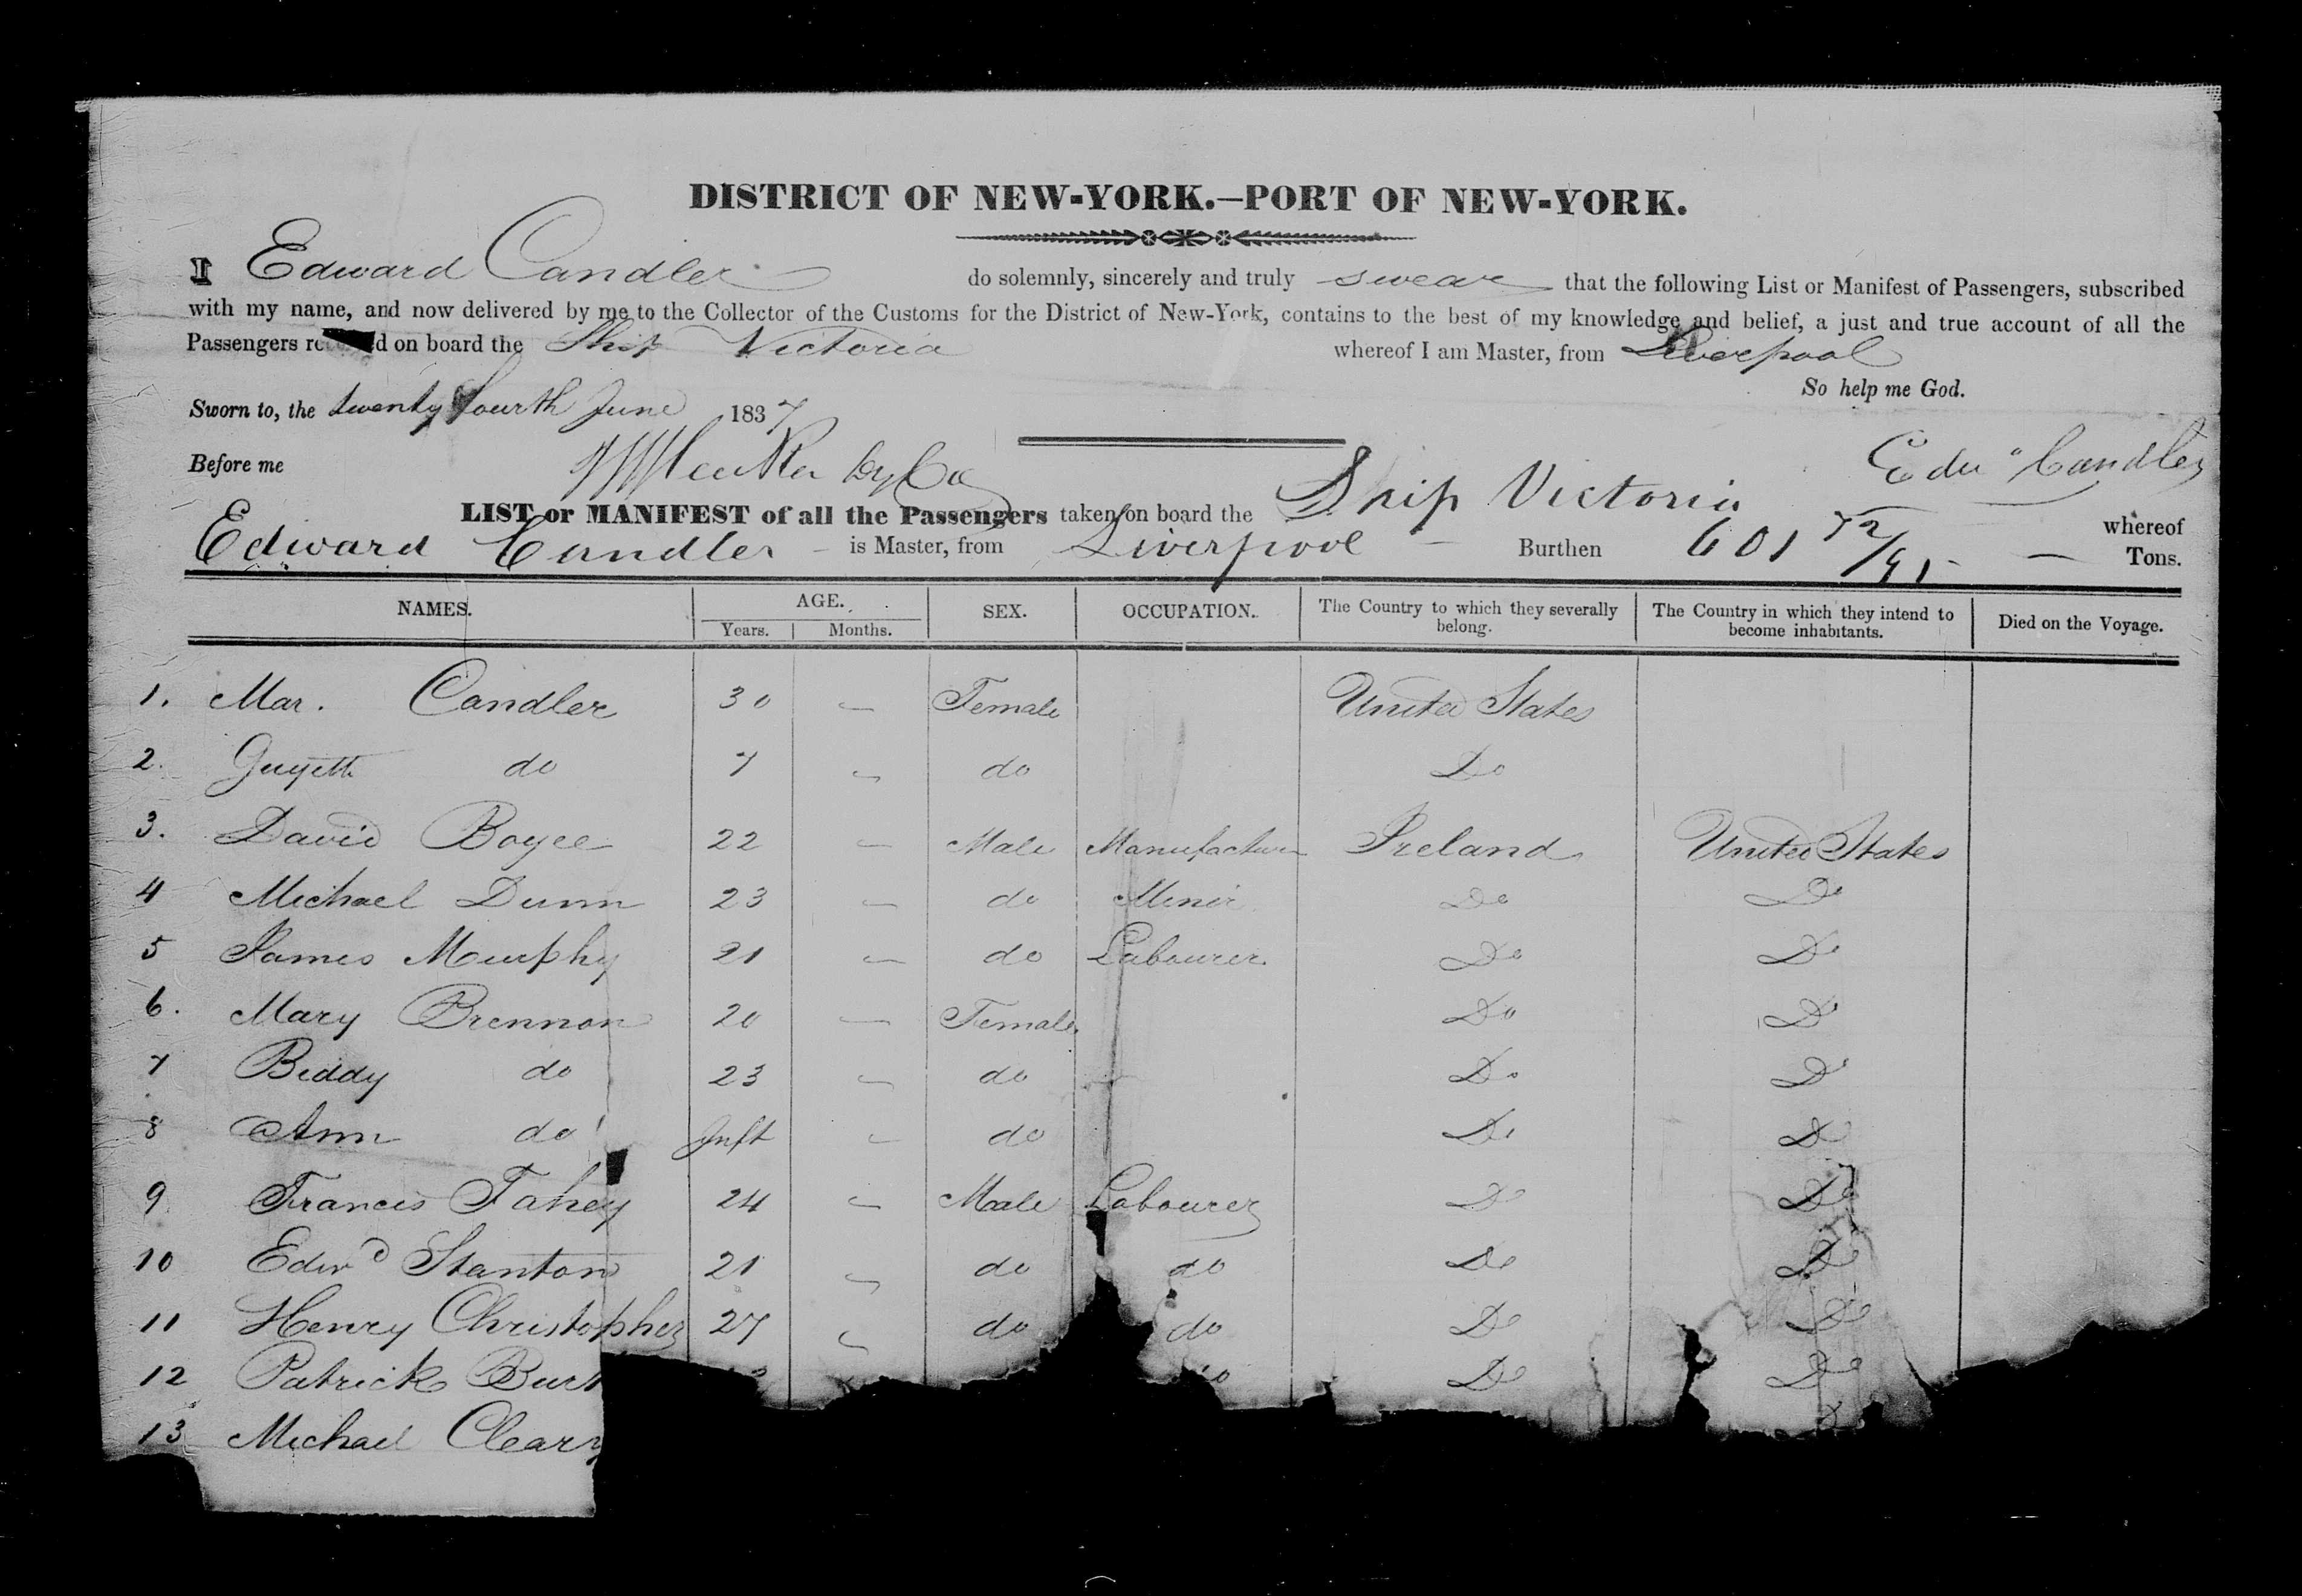 DISTRICT OF NEW-YORK.—PORT OF NEW-YORK.
I Edward Candler do solemnly, sincerely and truly swear that the following List or Manifest of Passengers, subscribed
with my name, and now delivered by me to the Collector of the Customs for the District of New-York, contains to the best of my knowledge and belief, a just and true account of all the
Passengers on board the Ship Victoria whereof I am Master, from Liverpool
So help me God.
Sworn to, the twenty fourth June 1837
Before me
Edw Candler
LIST or MANIFEST of all the Passengers taken on board the Ship Victoria whereof
Edward Candler is Master, from Liverpool Burthen 601 72/95 Tons.
NAMES. AGE. SEX. OCCUPATION. The Country to which they severally belong. The Country in which they intend to become inhabitants. Died on the Voyage.
Years. Months.
1. Mar. Candler 30 — Female United States
2. do 7 — do Do
3. David Boyce 22 — Male Manufacturer Ireland United States
4 Michael Dunn 23 — do Miner Do Do
5 James Murphy 21 — do Labourer Do Do
6. Mary Brennon 20 — Female Do Do
7 Biddy do 23 — do Do Do
8 Ann do Inft — do Do Do
9 Francis Fahey 24 — Male Labourer Do Do
10 Edwd Stanton 21 — do do Do Do
11 Henry Christopher 27 — do do Do Do
12 Patrick Do Do
13 Michael Cleary